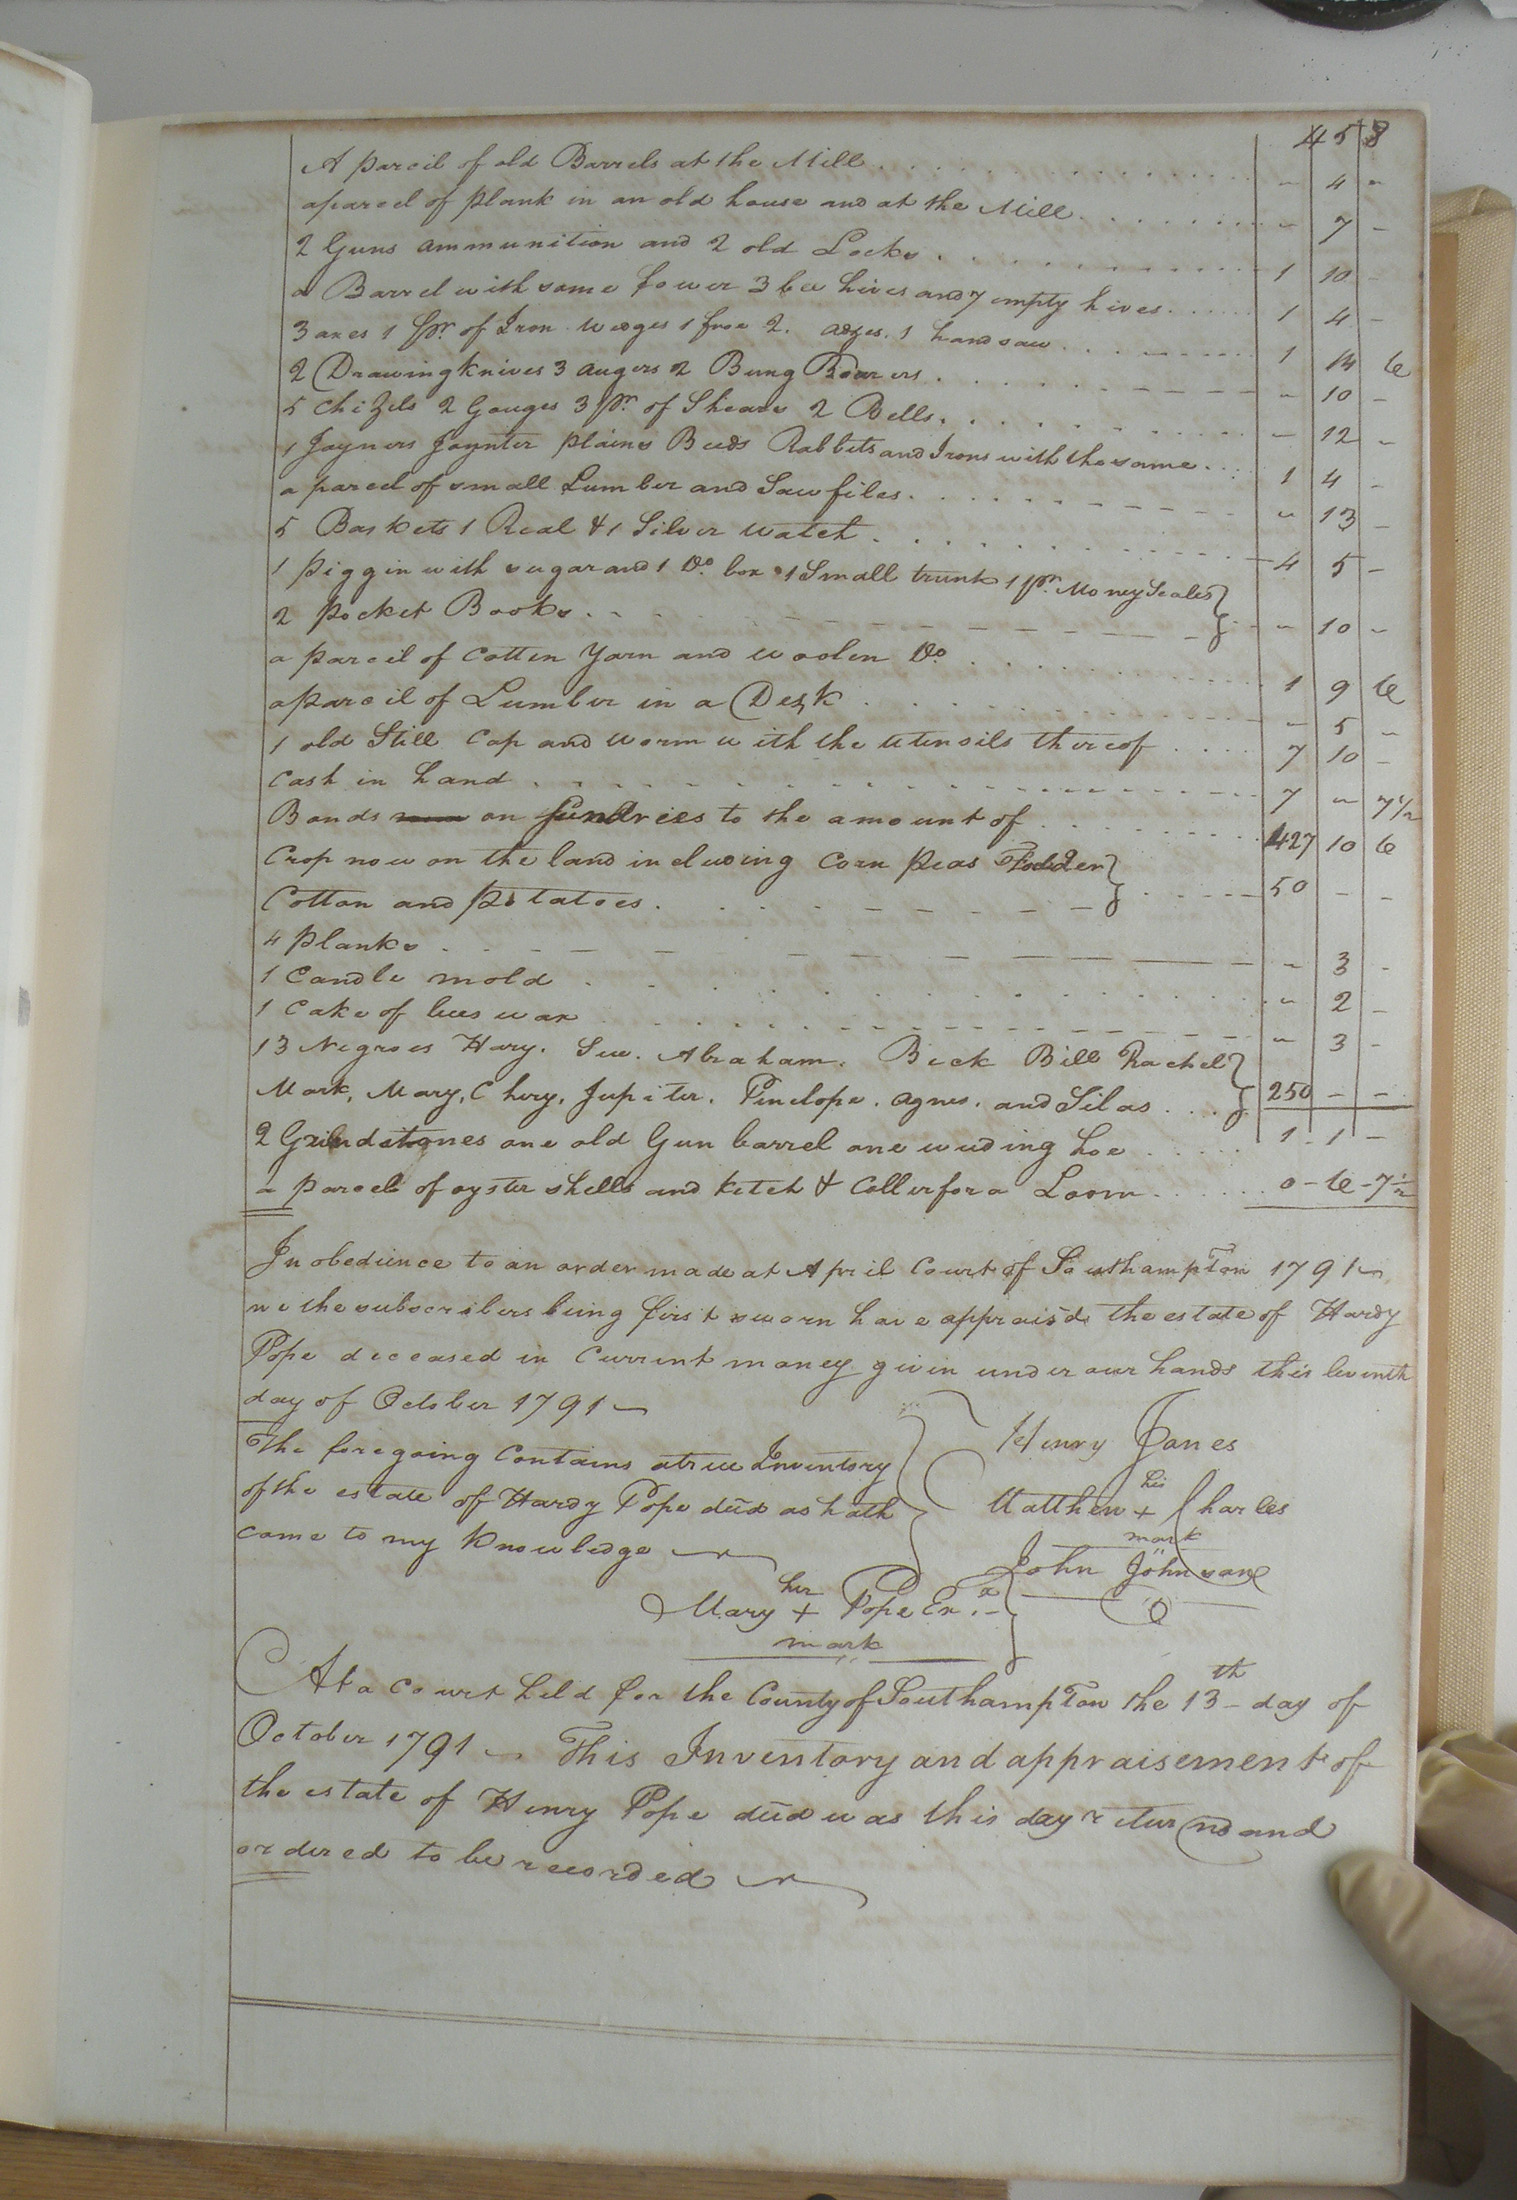 458
A parcil of old Barrels at the Mill - 4 -
a parcel of plank in an old house and at the Mill - 7 -
2 Guns ammunition and 2 old Locks 1 10 -
a Barrel with some flower 3 bee hives and 7 empty hives 1 4 -
3 axes 1 pr. of Iron wedges 1 froe 2. adzes. 1 hand saw 1 14 6
2 Drawing knives 3 augers 2 Bung Boarers - 10 -
5 Chizels 2 Gouges 3 pr. of Shears 2 Bells - 12 -
1 Joyners Joynter plains Beeds Rabbits and Irons with the same 1 4 -
a parcel of small Lumber and Saw files - 13 -
5 Baskets 1 Real & 1 Silver watch 4 5 -
1 piggin with sugar and 1 Do. box 1 Small trunk 1 pr. Money Scales
2 pocket Books - 10 -
a parcil of Cotten Yarn and woolen Do 1 9 6
a parcil of Lumber in a Desk - 5 -
1 old Still Cap and worm with the utensils thereof 7 10 -
Cash in hand 7 - 7 1/2
Bonds on Sundries to the amount of 427 10 6
Crop now on the land including Corn peas Fodder
Cotton and potatoes 50 - -
4 planks - 3 -
1 Candle mold - 2 -
1 Cake of bees wax - 3 -
13 Negroes Hary. Sue. Abraham. Beck Bill Rachel
Mark, Mary, Chery, Jupiter. Penelope. agnes. and Silas 250 - -
2 Grindstones one old Gun barrel one weeding hoe 1 - 1 -
a parcel of oyster shells and ketch & Coller for a Loom 0 - 6 - 7 1/2
In obedience to an order made at April Court of Southampton 1791
we the subscribers being first sworn have apprais'd the estate of Hardy
Pope deceased in Current money given under our hands this leventh
day of October 1791
The foregoing Contains a true Inventory
of the estate of Hardy Pope decd as hath
came to my knowledge
Henry Jones
his
Matthew + Charles
mark
John Johnson
her
Mary + Pope Ex.x
mark
At a Court held for the County of Southampton the 13th day of
October 1791 This Inventory and appraisement of
the estate of Henry Pope decd was this day returnd and
ordered to be recorded